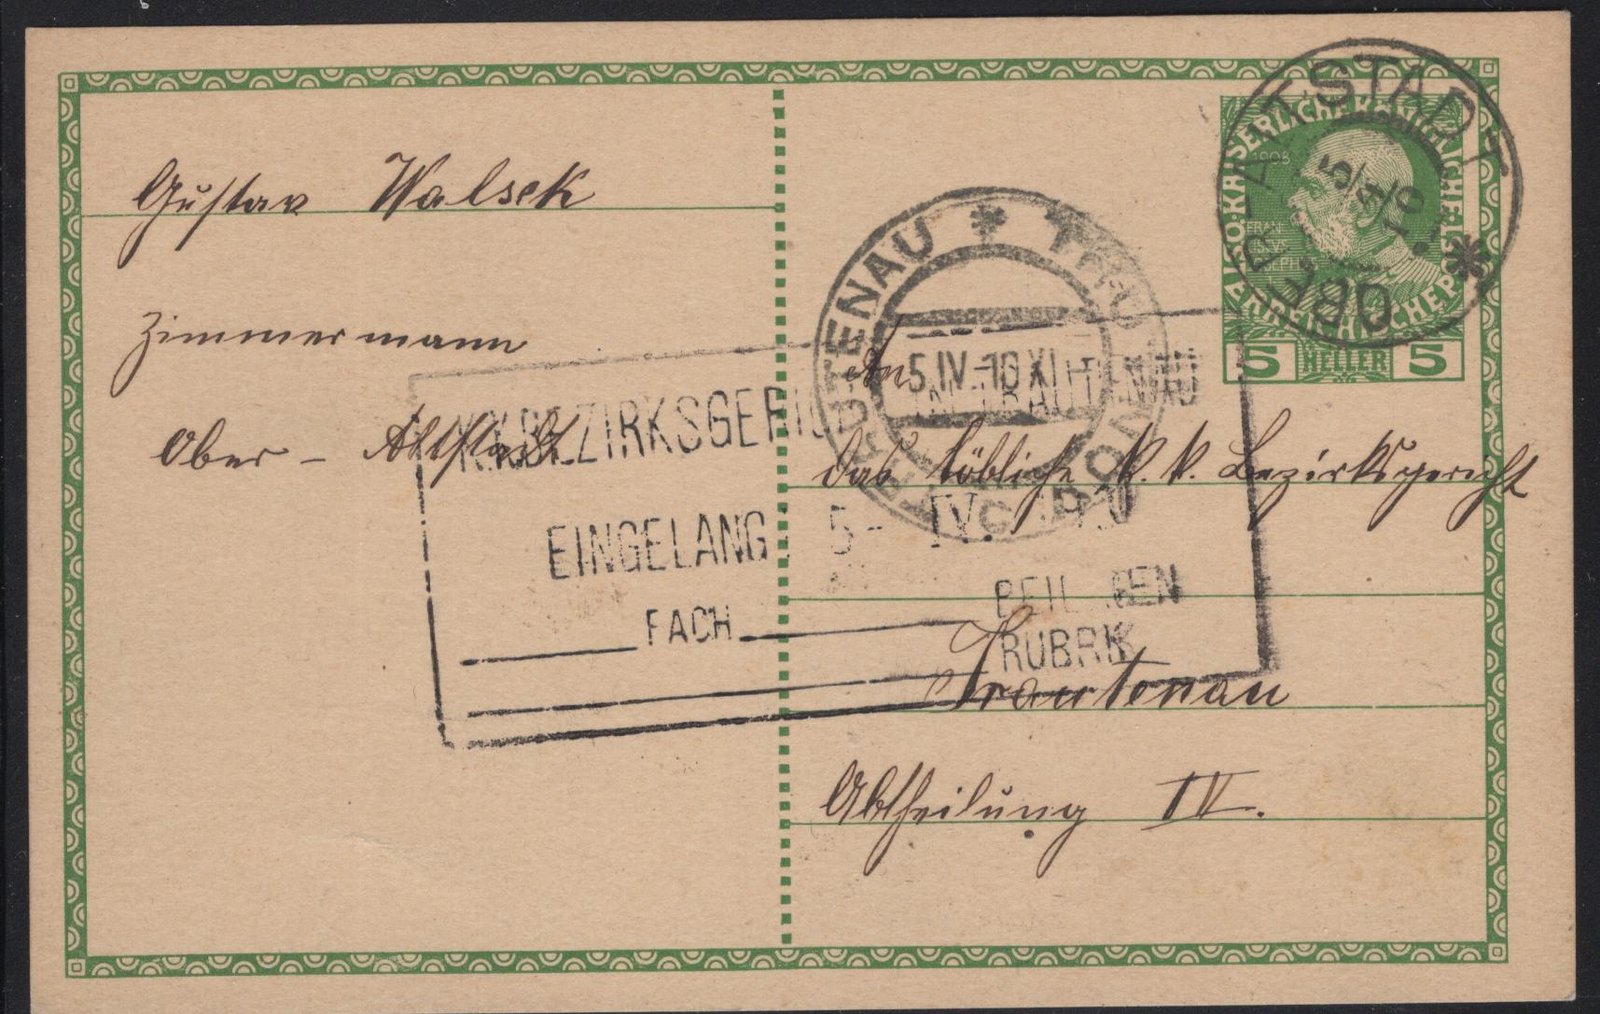 Gustav Walsek
Zimmermann
Ober - Altstadt
An
das löbliche k. k. Bezirksgericht
Trautenau
Abtheilung IV.
KAISERLICHE KÖNIGLICHE
1908
5 HELLER 5
OBER-ALTSTADT
5/4 10
TRAUTENAU
5.IV.-10 XI-
K.K. BEZIRKSGERICHT
IN TRAUTENAU
EINGELANG. 5 - IV.
FACH
BEILAGEN
RUBRIK